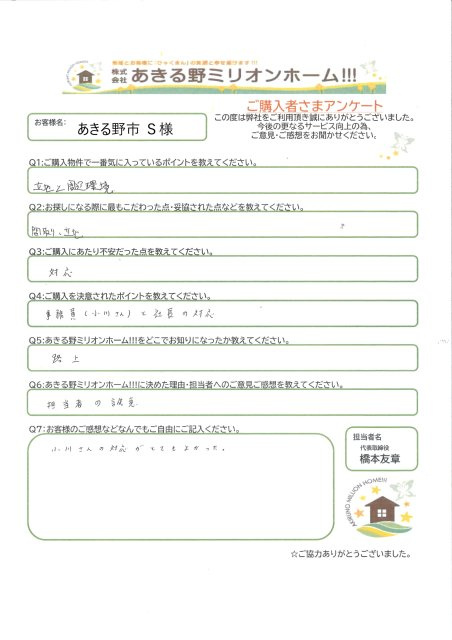 地域とお客様に「ひゃくまん」の笑顔と幸を届けます!!!
株式会社 あきる野ミリオンホーム!!!
ご購入者さまアンケート
この度は弊社をご利用頂き誠にありがとうございました。
今後の更なるサービス向上の為、
ご意見・ご感想をお聞かせください。
お客様名: あきる野市 S 様
Q1:ご購入物件で一番気に入っているポイントを教えてください。
立地と周辺環境
Q2:お探しになる際に最もこだわった点・妥協された点などを教えてください。
間取り、立地
Q3:ご購入にあたり不安だった点を教えてください。
対応
Q4:ご購入を決意されたポイントを教えてください。
事務員(小川さん)と社長の対応
Q5:あきる野ミリオンホーム!!!をどこでお知りになったか教えてください。
路上
Q6:あきる野ミリオンホーム!!!に決めた理由・担当者へのご意見ご感想を教えてください。
担当者の誠意
Q7:お客様のご感想などなんでもご自由にご記入ください。
小川さんの対応がとてもよかった。
担当者名
代表取締役
橋本友章
AKIRUNO MILLION HOME!!!
☆ご協力ありがとうございました。